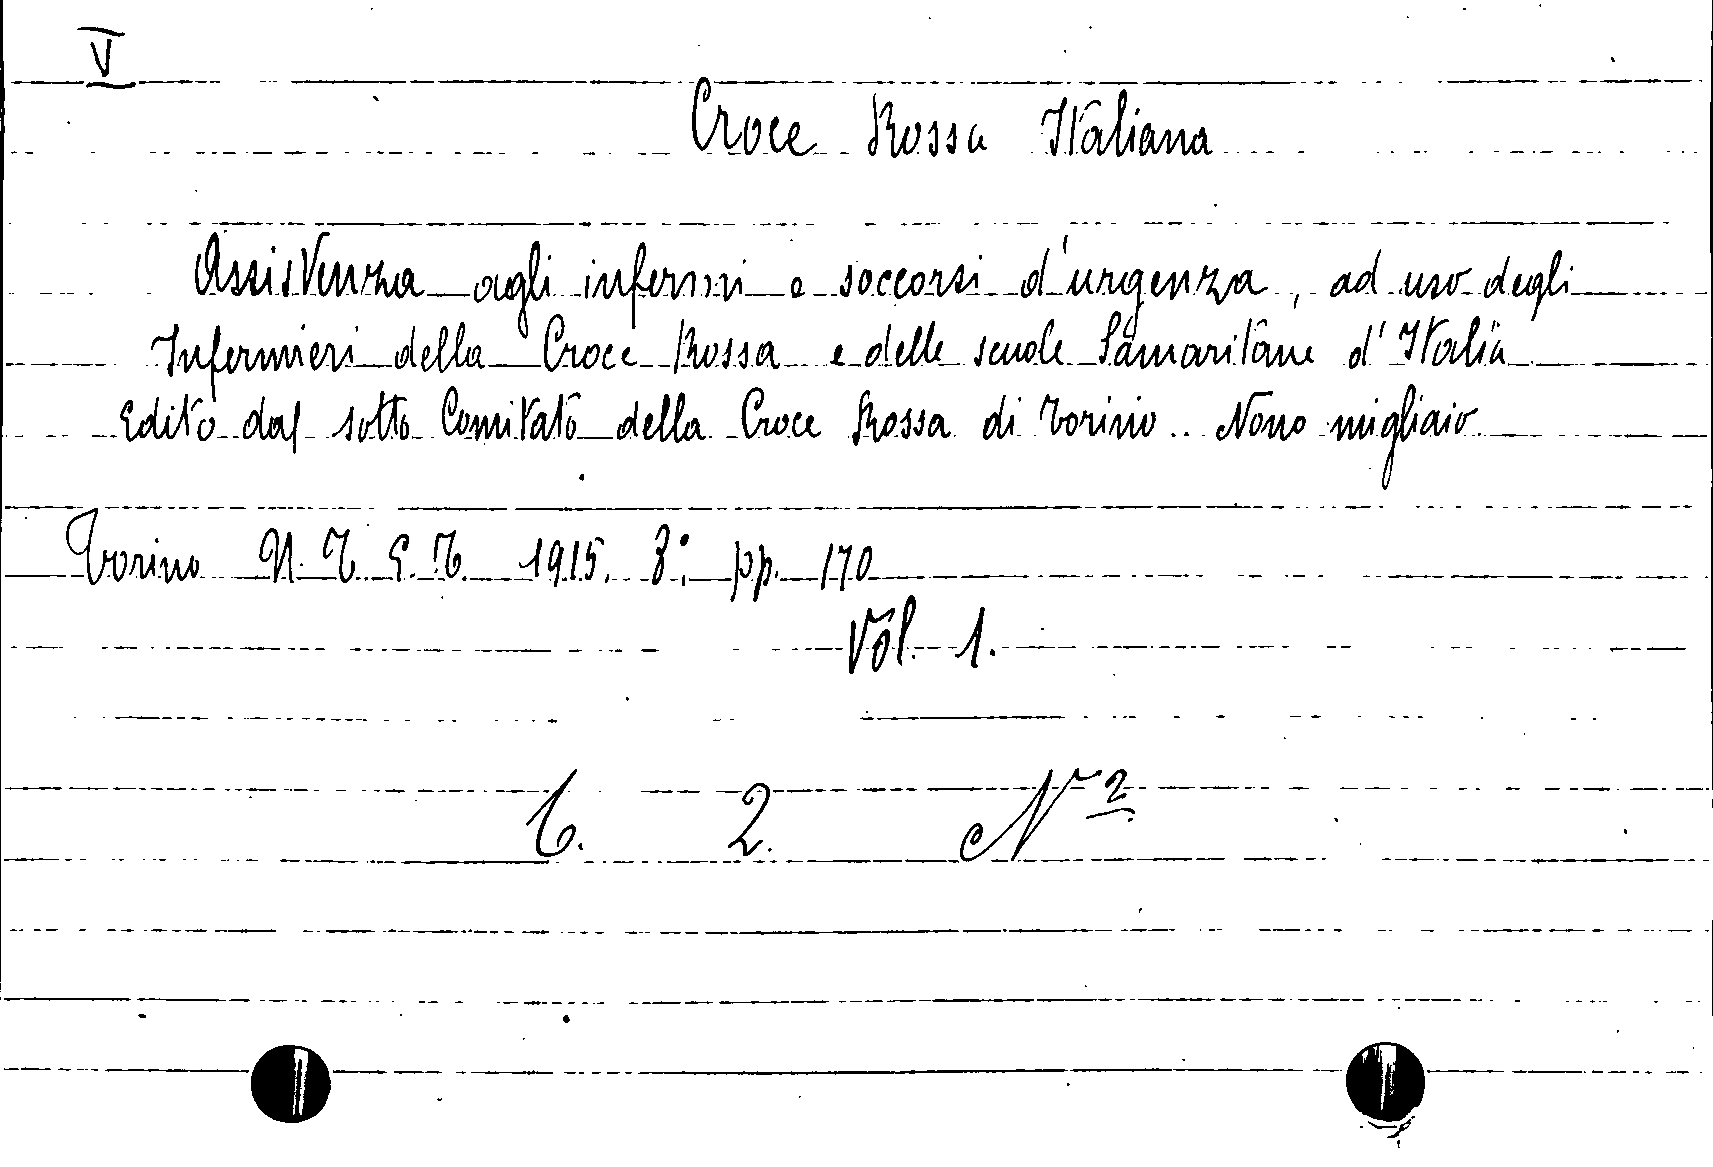 V
Croce Rossa Italiana
Assistenza agli infermi e soccorsi d'urgenza, ad uso degli
Infermieri della Croce Rossa e delle scuole Samaritane d'Italia
Edito dal sotto Comitato della Croce Rossa di Torino.. Nono migliaio
Torino U. T. E. T. 1915. 8°; pp. 170
Vol. 1.
C. 2. N 2